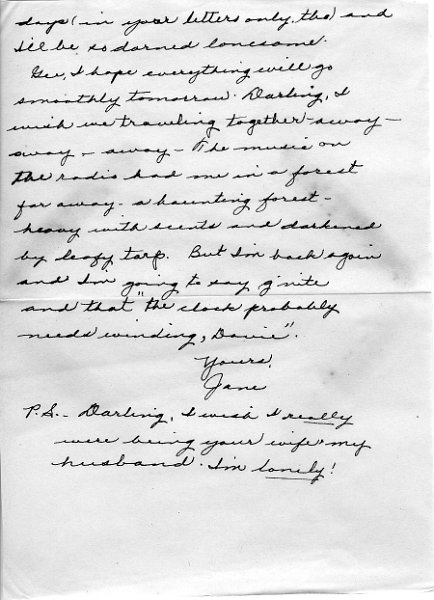 days (in your letters only, tho) and
I'll be so darned lonesome.
Gee, I hope everything will go
smoothly tomorrow. Darling, I
wish we traveling together - away -
away - away - The music on
the radio had me in a forest
far away - a haunting forest -
heavy with scents and darkened
by leafy tarp. But I'm back again
and I'm going to say g'nite
and that "the clock probably
needs winding, Davie".
Yours,
Jane
P.S. - Darling, I wish I really
were being your wife, my
husband. I'm lonely!